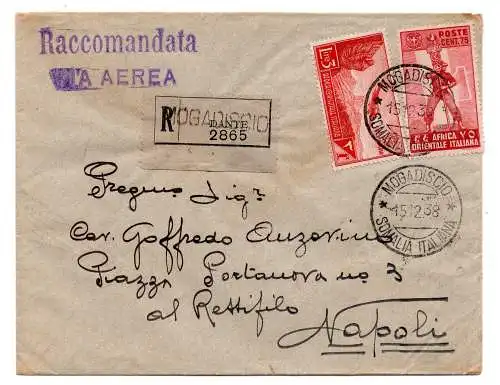 Raccomandata
VIA AEREA
R
MOGADISCIO
DANTE
2865
POSTE
CENT. 75
AFRICA
ORIENTALE ITALIANA
MOGADISCIO
15.12.3
SOMALI
MOGADISCIO
15.12.38
SOMALIA ITALIANA
Pregmo Sigr
Cav. Goffredo Anzovino
Piazza Portanova no 3
al Rettifilo
Napoli